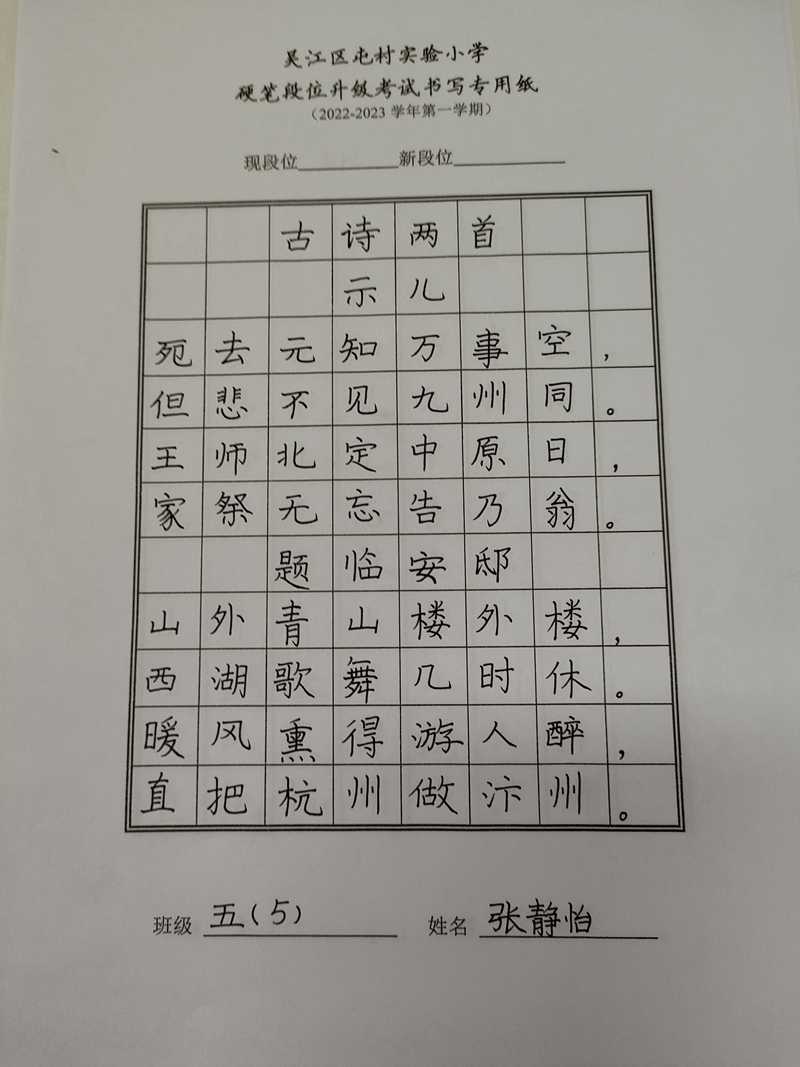 吴江区屯村实验小学
硬笔段位升级考试书写专用纸
（2022-2023 学年第一学期）
现段位__________新段位__________
古诗两首
示儿
死去元知万事空，
但悲不见九州同。
王师北定中原日，
家祭无忘告乃翁。
题临安邸
山外青山楼外楼，
西湖歌舞几时休。
暖风熏得游人醉，
直把杭州做汴州。
班级 五(5) 姓名 张静怡